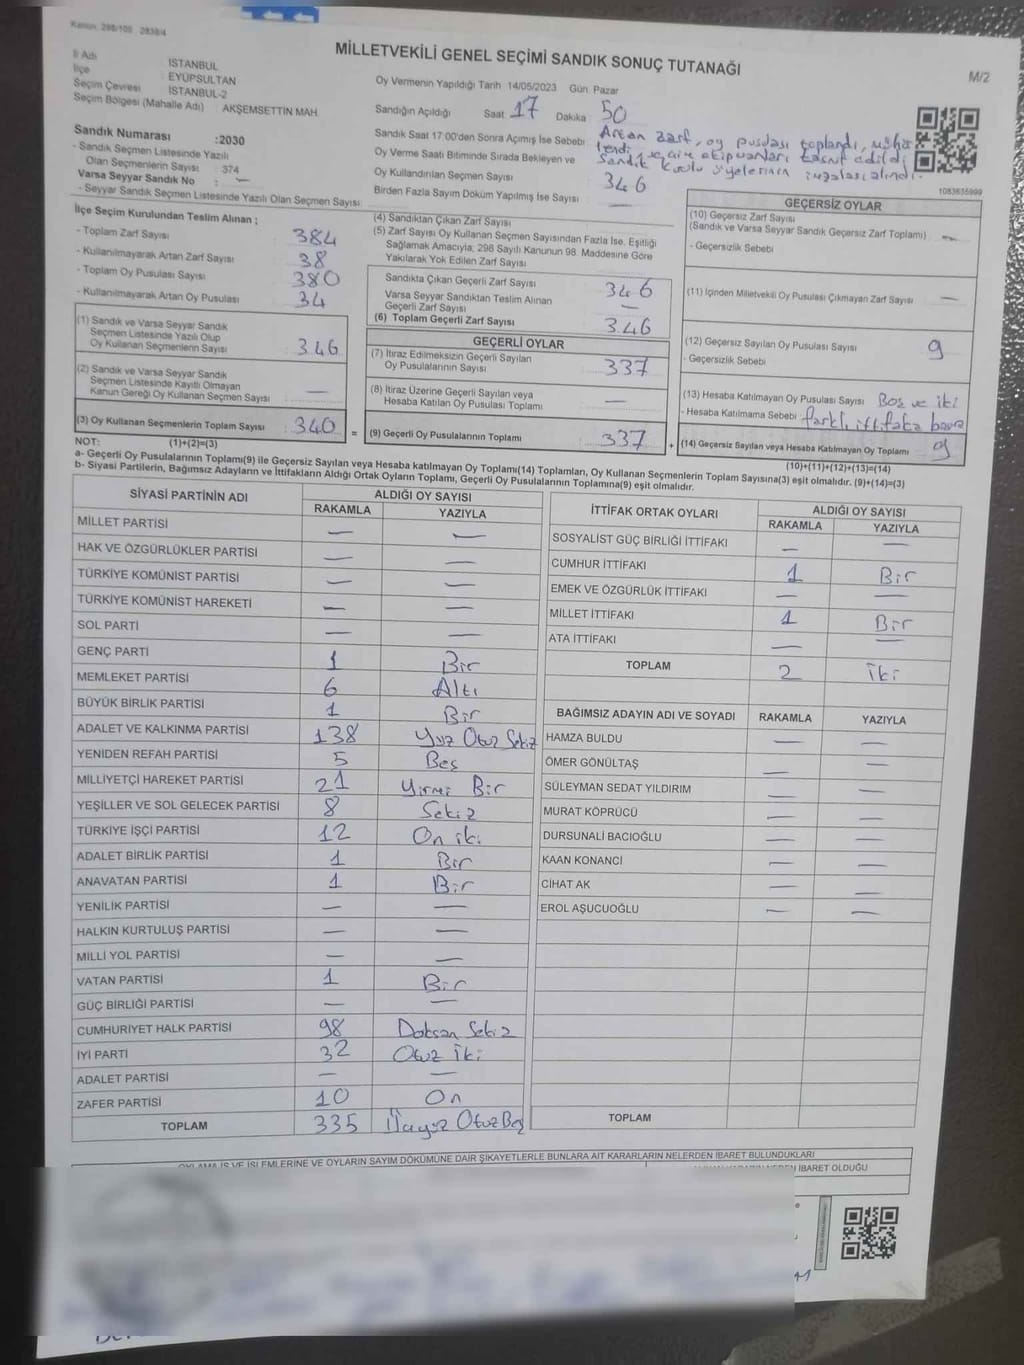 Kanun: 298/105 , 2839/4
MİLLETVEKİLİ GENEL SEÇİMİ SANDIK SONUÇ TUTANAĞI
M/2
İl Adı İSTANBUL
İlçe EYÜPSULTAN
Seçim Çevresi İSTANBUL-2
Seçim Bölgesi (Mahalle Adı) : AKŞEMSETTİN MAH.
Oy Vermenin Yapıldığı Tarih 14/05/2023 Gün Pazar
Sandığın Açıldığı Saat 17 Dakika 50
Sandık Numarası :2030
- Sandık Seçmen Listesinde Yazılı
Olan Seçmenlerin Sayısı: 374
Varsa Seyyar Sandık No : —
- Seyyar Sandık Seçmen Listesinde Yazılı Olan Seçmen Sayısı:
Sandık Saat 17:00'den Sonra Açımış İse Sebebi
Artan zarf, oy pusulası toplandı, mühür
Oy Verme Saati Bitiminde Sırada Bekleyen ve
Oy Kullandırılan Seçmen Sayısı
Sandık Kurulu üyelerinin imzaları alındı.
346
Birden Fazla Sayım Döküm Yapılmış İse Sayısı —
1083635999
İlçe Seçim Kurulundan Teslim Alınan ;
- Toplam Zarf Sayısı 384
- Kullanılmayarak Artan Zarf Sayısı 38
- Toplam Oy Pusulası Sayısı 380
- Kullanılmayarak Artan Oy Pusulası 34
(1) Sandık ve Varsa Seyyar Sandık
Seçmen Listesinde Yazılı Olup
Oy Kullanan Seçmenlerin Sayısı : 346
(2) Sandık ve Varsa Seyyar Sandık
Seçmen Listesinde Kayıtlı Olmayan
Kanun Gereği Oy Kullanan Seçmen Sayısı : —
(3) Oy Kullanan Seçmenlerin Toplam Sayısı : 340 =
(4) Sandıktan Çıkan Zarf Sayısı
(5) Zarf Sayısı Oy Kullanan Seçmen Sayısından Fazla İse, Eşitliği
Sağlamak Amacıyla; 298 Sayılı Kanunun 98. Maddesine Göre
Yakılarak Yok Edilen Zarf Sayısı
Sandıkta Çıkan Geçerli Zarf Sayısı 346
Varsa Seyyar Sandıktan Teslim Alınan
Geçerli Zarf Sayısı —
(6) Toplam Geçerli Zarf Sayısı 346
GEÇERLİ OYLAR
(7) İtiraz Edilmeksizin Geçerli Sayılan
Oy Pusulalarının Sayısı 337
(8) İtiraz Üzerine Geçerli Sayılan veya
Hesaba Katılan Oy Pusulası Toplamı : —
(9) Geçerli Oy Pusulalarının Toplamı : 337 +
GEÇERSİZ OYLAR
(10) Geçersiz Zarf Sayısı
(Sandık ve Varsa Seyyar Sandık Geçersiz Zarf Toplamı) : —
- Geçersizlik Sebebi
(11) İçinden Milletvekili Oy Pusulası Çıkmayan Zarf Sayısı : —
(12) Geçersiz Sayılan Oy Pusulası Sayısı 9
- Geçersizlik Sebebi
(13) Hesaba Katılmayan Oy Pusulası Sayısı Boş ve iki
- Hesaba Katılmama Sebebi : farklı ittifaka
(14) Geçersiz Sayılan veya Hesaba Katılmayan Oy Toplamı : 9
NOT: (1)+(2)=(3)
(10)+(11)+(12)+(13)=(14)
a- Geçerli Oy Pusulalarının Toplamı(9) ile Geçersiz Sayılan veya Hesaba katılmayan Oy Toplamı(14) Toplamları, Oy Kullanan Seçmenlerin Toplam Sayısına(3) eşit olmalıdır. (9)+(14)=(3)
b- Siyasi Partilerin, Bağımsız Adayların ve İttifakların Aldığı Ortak Oyların Toplamı, Geçerli Oy Pusulalarının Toplamına(9) eşit olmalıdır.
SİYASİ PARTİNİN ADI ALDIĞI OY SAYISI
RAKAMLA YAZIYLA
MİLLET PARTİSİ — —
HAK VE ÖZGÜRLÜKLER PARTİSİ — —
TÜRKİYE KOMÜNİST PARTİSİ — —
TÜRKİYE KOMÜNİST HAREKETİ — —
SOL PARTİ — —
GENÇ PARTİ 1 Bir
MEMLEKET PARTİSİ 6 Altı
BÜYÜK BİRLİK PARTİSİ 1 Bir
ADALET VE KALKINMA PARTİSİ 138 Yüz Otuz Sekiz
YENİDEN REFAH PARTİSİ 5 Beş
MİLLİYETÇİ HAREKET PARTİSİ 21 Yirmi Bir
YEŞİLLER VE SOL GELECEK PARTİSİ 8 Sekiz
TÜRKİYE İŞÇİ PARTİSİ 12 On iki
ADALET BİRLİK PARTİSİ 1 Bir
ANAVATAN PARTİSİ 1 Bir
YENİLİK PARTİSİ — —
HALKIN KURTULUŞ PARTİSİ — —
MİLLİ YOL PARTİSİ — —
VATAN PARTİSİ 1 Bir
GÜÇ BİRLİĞİ PARTİSİ — —
CUMHURİYET HALK PARTİSİ 98 Doksan Sekiz
İYİ PARTİ 32 Otuz İki
ADALET PARTİSİ — —
ZAFER PARTİSİ 10 On
TOPLAM 335 Üçyüz Otuz Beş
İTTİFAK ORTAK OYLARI ALDIĞI OY SAYISI
RAKAMLA YAZIYLA
SOSYALİST GÜÇ BİRLİĞİ İTTİFAKI — —
CUMHUR İTTİFAKI 1 Bir
EMEK VE ÖZGÜRLÜK İTTİFAKI — —
MİLLET İTTİFAKI 1 Bir
ATA İTTİFAKI — —
TOPLAM 2 İki
BAĞIMSIZ ADAYIN ADI VE SOYADI RAKAMLA YAZIYLA
HAMZA BULDU — —
ÖMER GÖNÜLTAŞ — —
SÜLEYMAN SEDAT YILDIRIM — —
MURAT KÖPRÜCÜ — —
DURSUNALİ BACIOĞLU — —
KAAN KONANCI — —
CİHAT AK — —
EROL AŞUCUOĞLU — —
TOPLAM
OYLAMA İŞ VE İŞLEMLERİNE VE OYLARIN SAYIM DÖKÜMÜNE DAİR ŞİKAYETLERLE BUNLARA AİT KARARLARIN NELERDEN İBARET BULUNDUKLARI
İBARET OLDUĞU